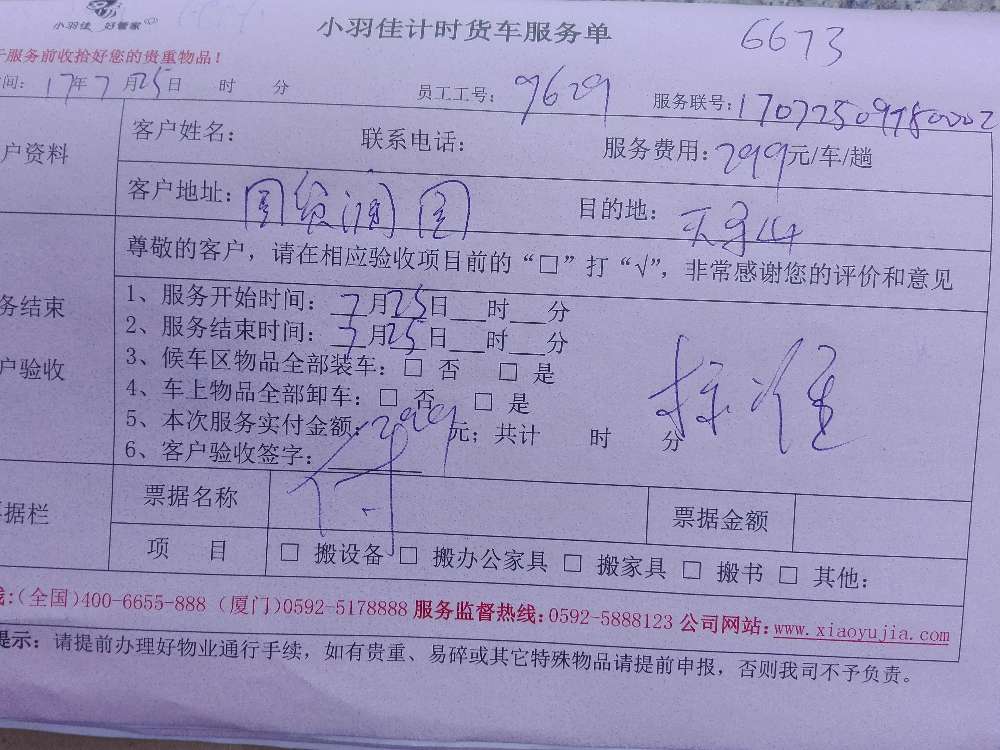 小羽佳 好管家
小羽佳计时货车服务单
6673
于服务前收拾好您的贵重物品！
间：17年7月25日 时 分 员工工号：9629 服务联号：170725099780002
户资料 客户姓名： 联系电话： 服务费用：299元/车/趟
客户地址：国贸润园 目的地：
尊敬的客户，请在相应验收项目前的“□”打“√”，非常感谢您的评价和意见
务结束
户验收
1、服务开始时间：7月25日___时___分
2、服务结束时间：7月25日___时___分
3、候车区物品全部装车：□ 否 □ 是
4、车上物品全部卸车：□ 否 □ 是
5、本次服务实付金额：299元；共计 时 分
6、客户验收签字：
标准
据栏 票据名称 票据金额
项 目 □ 搬设备 □ 搬办公家具 □ 搬家具 □ 搬书 □ 其他：
线:(全国)400-6655-888 (厦门)0592-5178888 服务监督热线:0592-5888123 公司网站:www.xiaoyujia.com
提示：请提前办理好物业通行手续，如有贵重、易碎或其它特殊物品请提前申报，否则我司不予负责。